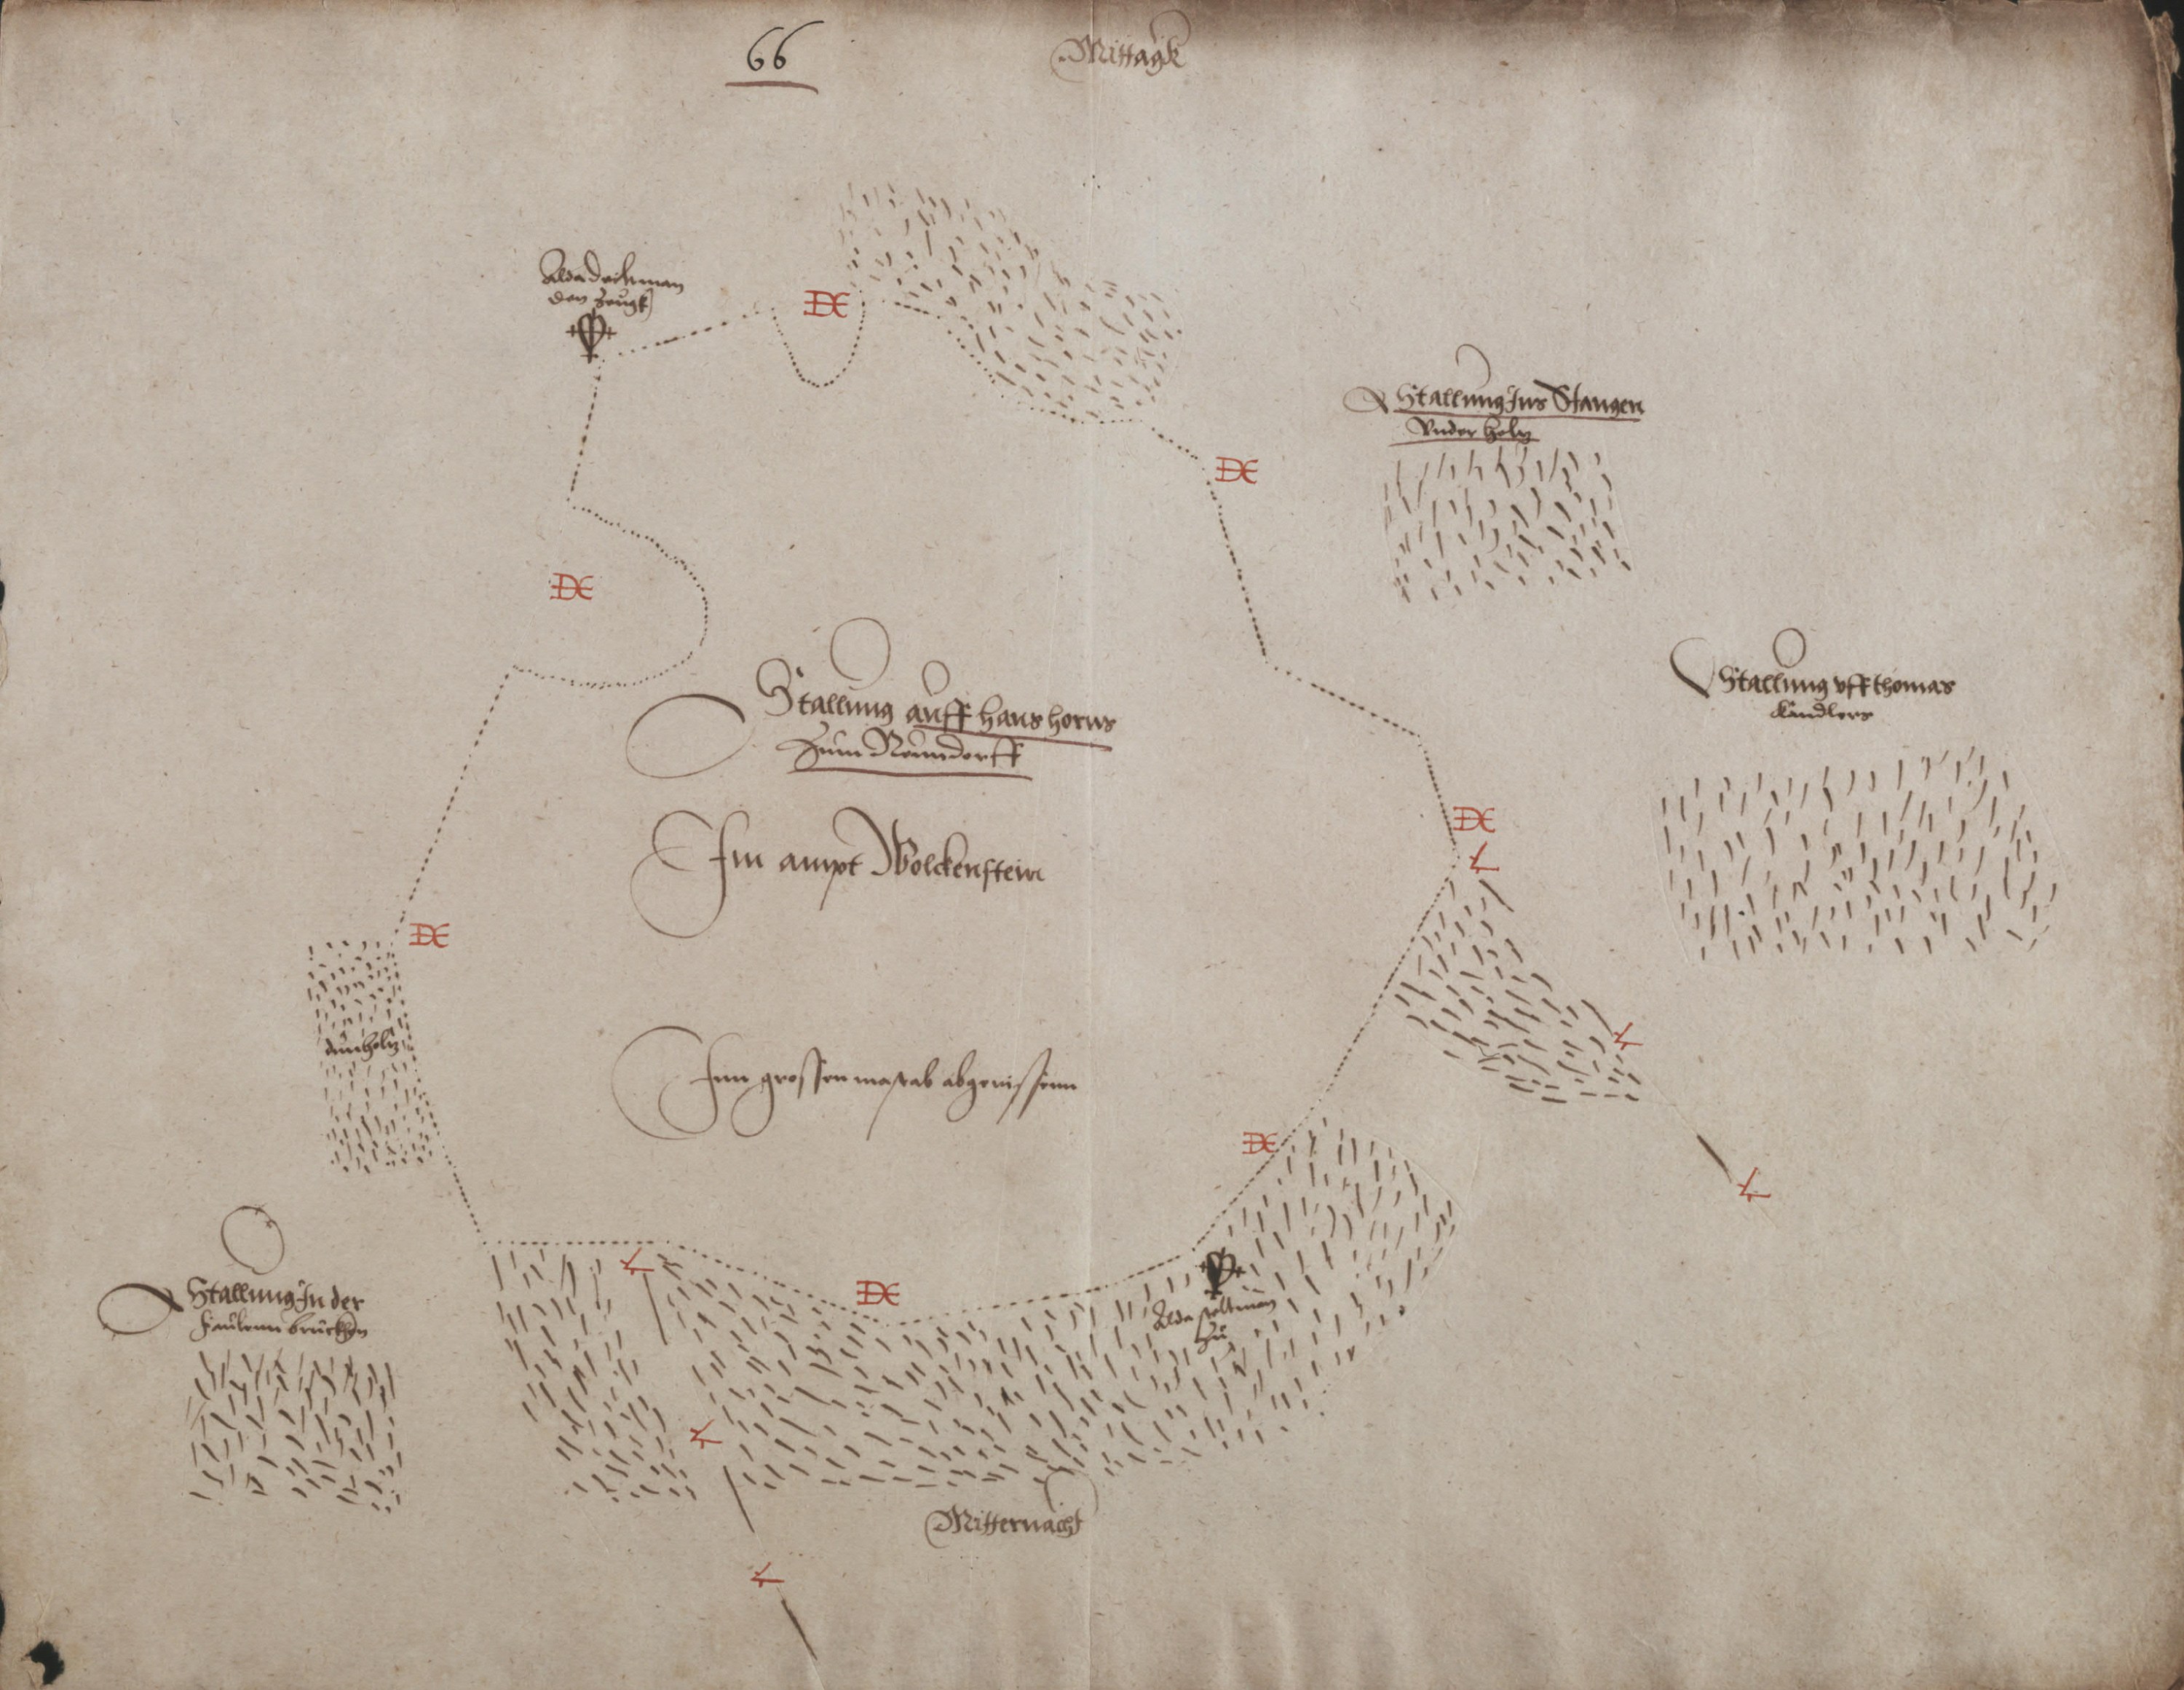 66
Mittagk
Alda
den Zeugk
Stallung Ins Stangen
Under holtz
Stallung uff thomas
Kandlers
Stallung auff hans horns
Zum Neundorff
Im ampt Wolckenstein
Inn grossen mastab abgerissenn
Stallung In der
faulenn brucken
Alda
zu
Mitternacht